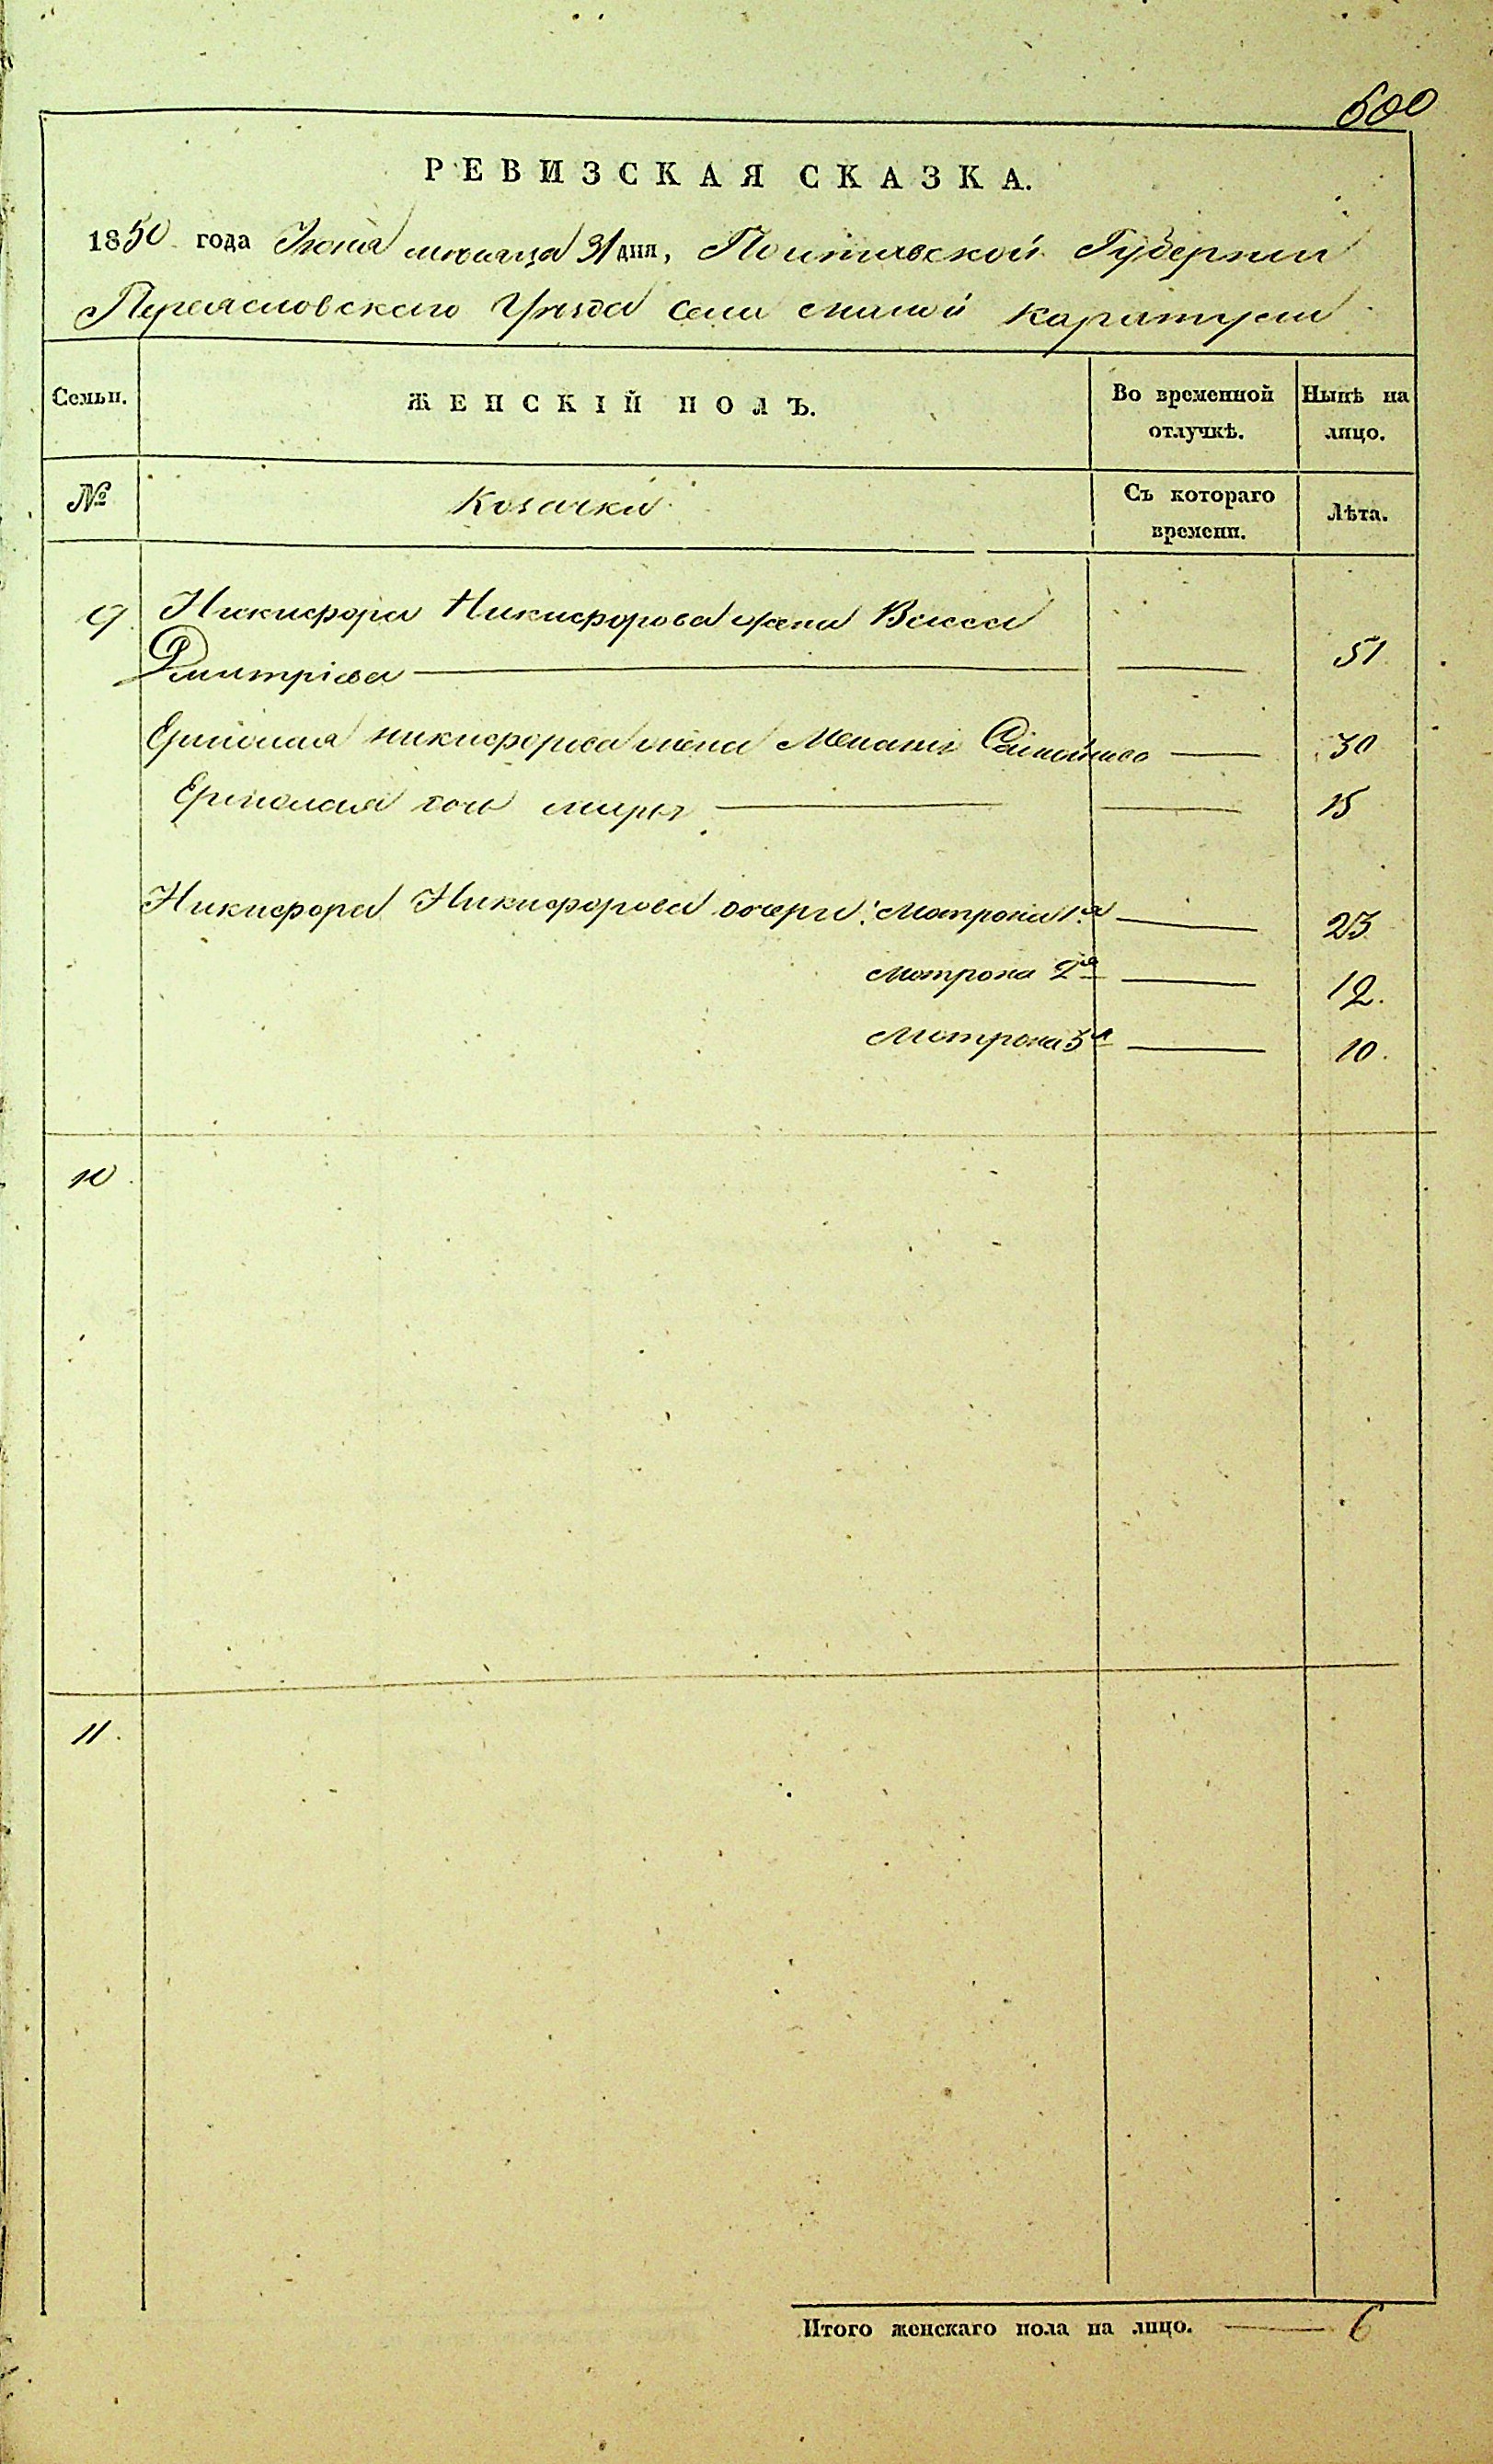 600
РЕВИЗСКАЯ СКАЗКА.
1850 года Июля месяца 31 дня, Полтавской Губернии
Переясловскаго Уезда села малой каратули
Семьи.
ЖЕНСКІЙ ПОЛЪ.
Во временной отлучкѣ.
Нынѣ на лицо.
№
Козачки
Съ котораго времени.
Лѣта.
9. Никифора Никифорова жена Васса
Дмитріева 51
Ермолая никифорова жена Меланія 30
Ермолая дочь 15
Никифора Никифорова дочери: Мотрона 1я 23
Мотрона 2я 12.
Мотрона 3я 10.
10.
11.
Итого женскаго пола на лицо. 6